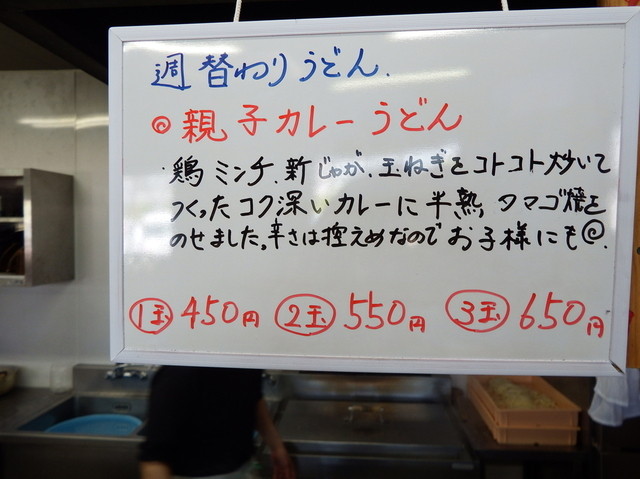 週替わりうどん.
◎親子カレーうどん
・鶏ミンチ、新じゃが、玉ねぎをコトコト炒いて
つくったコク深いカレーに半熟タマゴ焼を
のせました。辛さは控えめなのでお子様にも◎.
1玉 450円 2玉 550円 3玉 650円